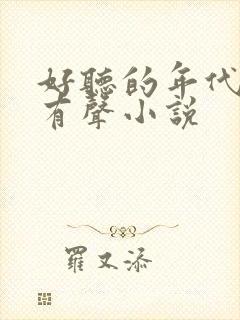 好聽的年代
有聲小説
羅又添